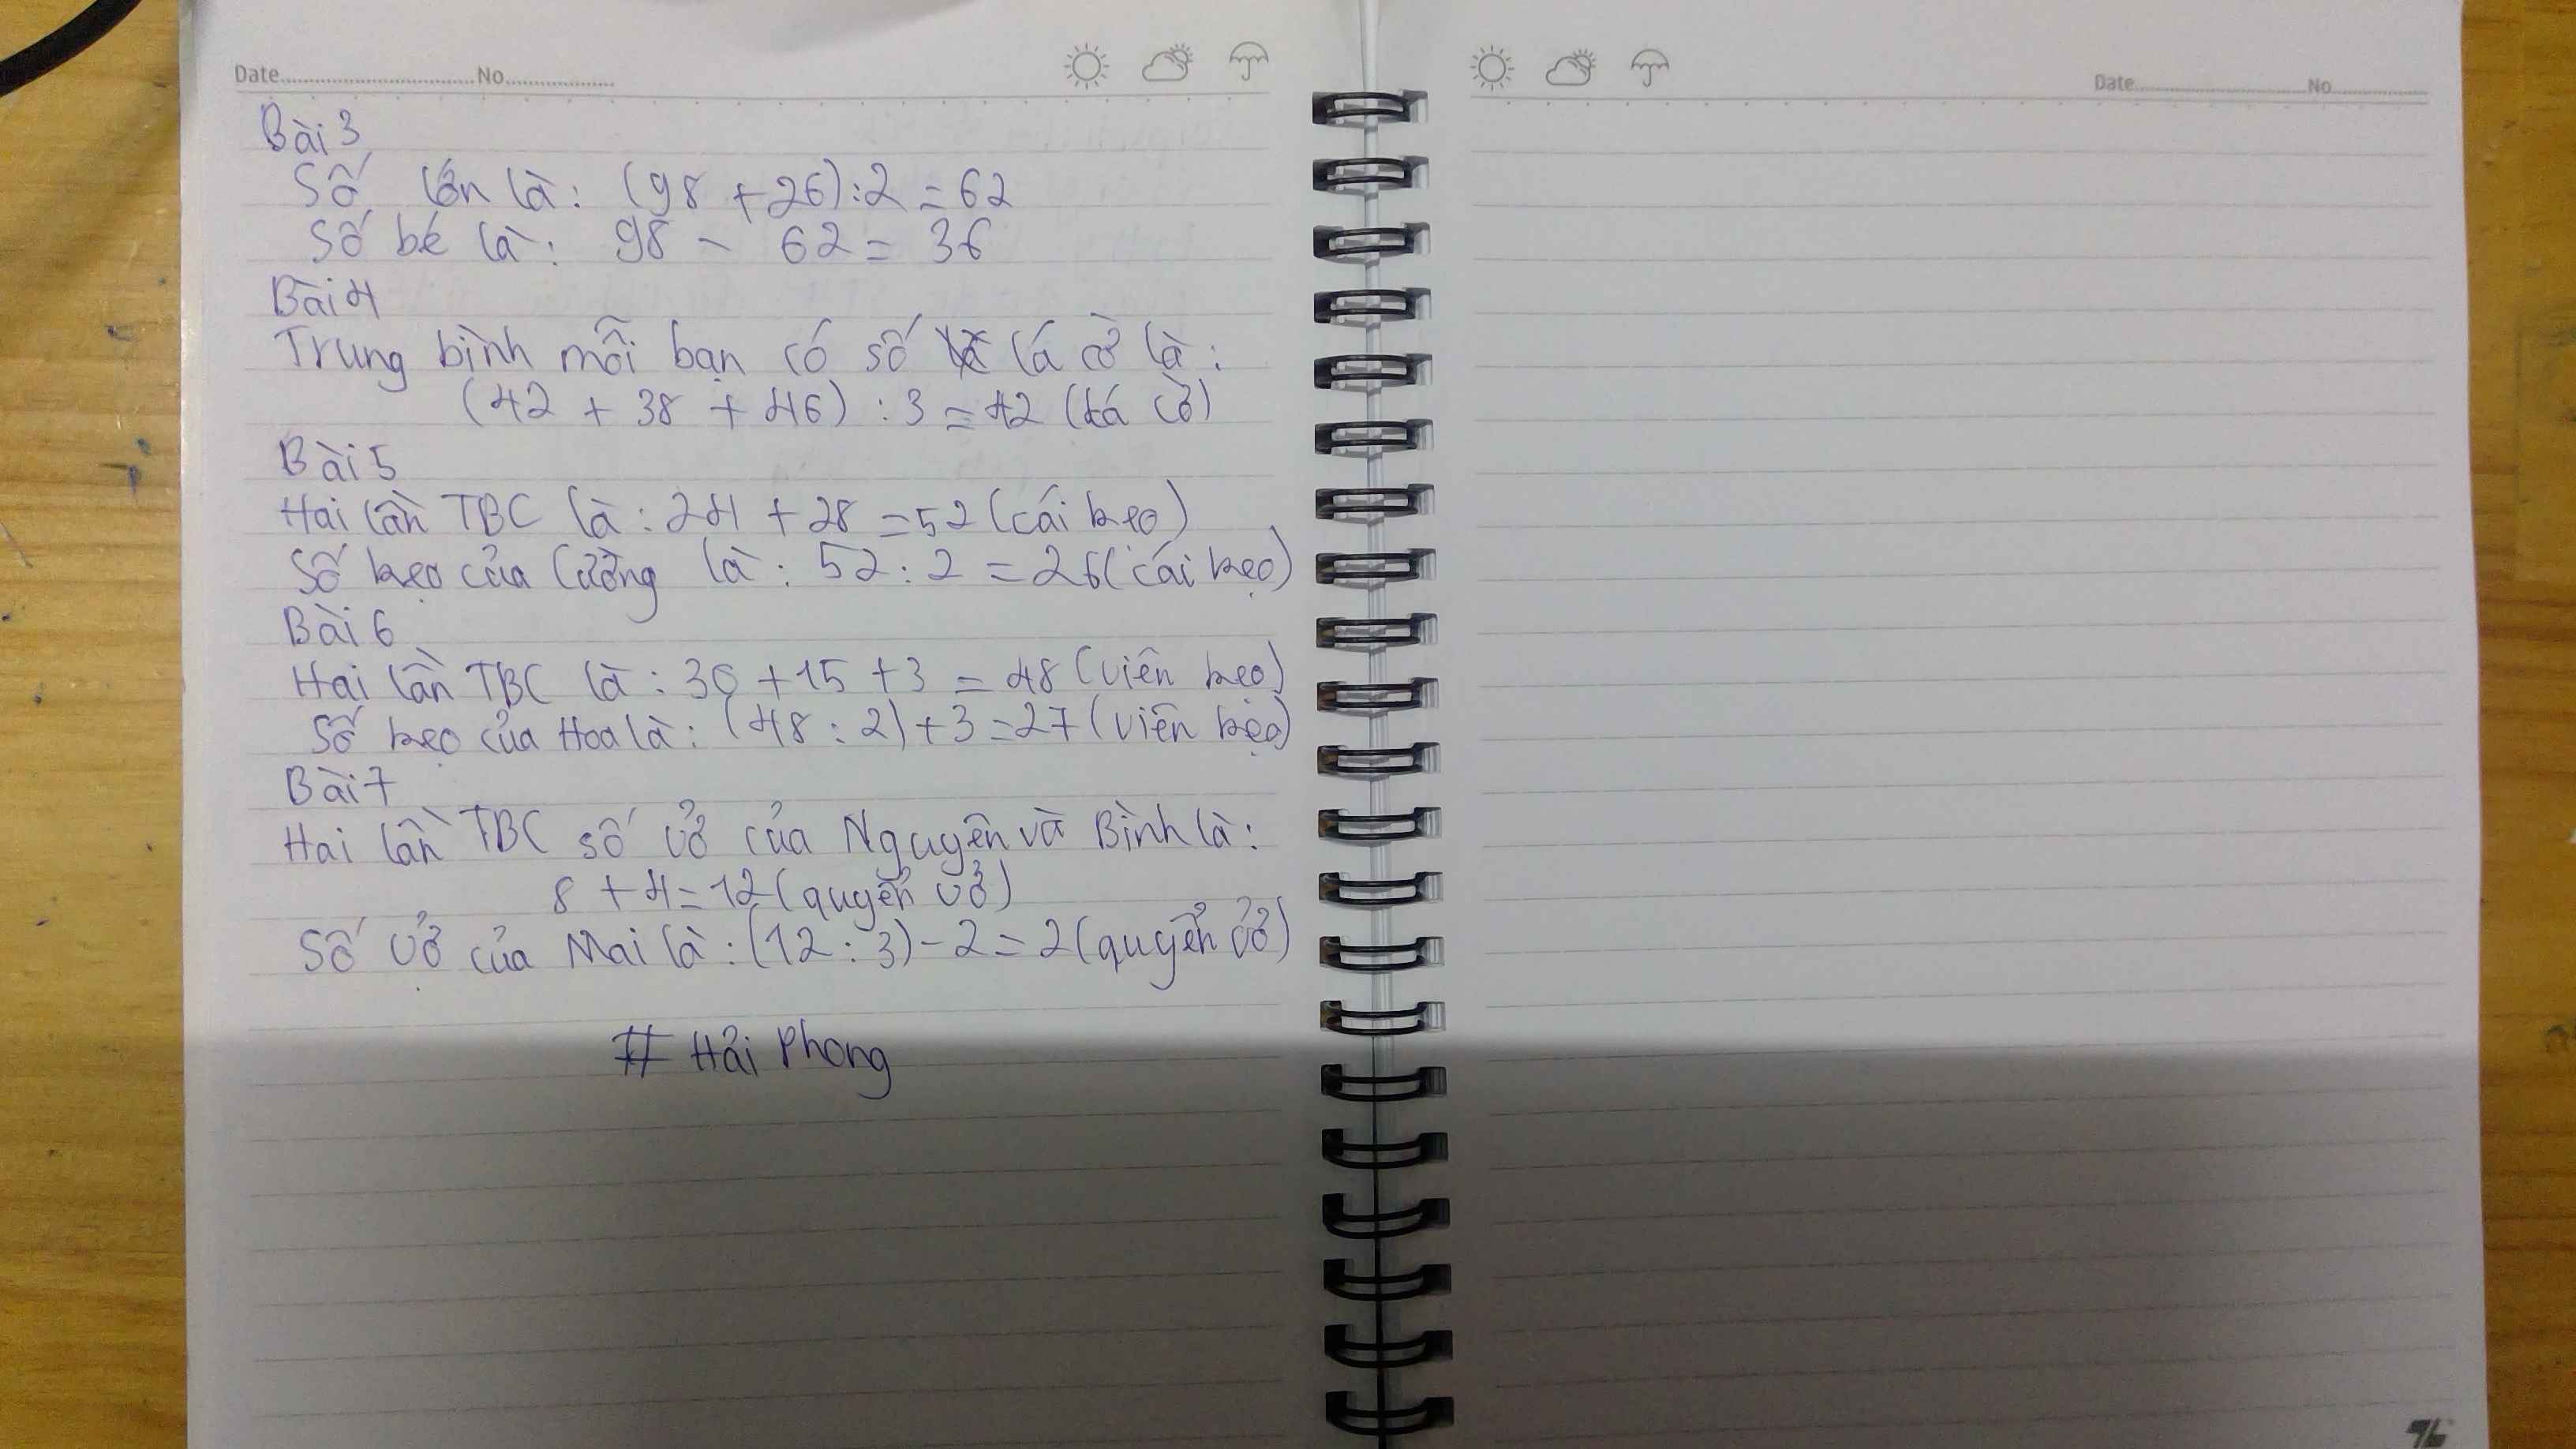 Date No
Bài 3
Số lớn là: (98 + 26):2 = 62
Số bé là: 98 - 62 = 36
Bài 4
Trung bình mỗi bạn có số lá cờ là:
(42 + 38 + 46) : 3 = 42 (lá cờ)
Bài 5
Hai lần TBC là: 24 + 28 = 52 (cái kẹo)
Số kẹo của Cường là: 52:2 = 26 (cái kẹo)
Bài 6
Hai lần TBC là: 30 + 15 + 3 = 48 (viên kẹo)
Số kẹo của Hoa là: (48 : 2) + 3 = 27 (viên kẹo)
Bài 7
Hai lần TBC số vở của Nguyên và Bình là:
8 + 4 = 12 (quyển vở)
Số vở của Mai là: (12 : 3) - 2 = 2 (quyển vở)
# Hải Phong
Date No